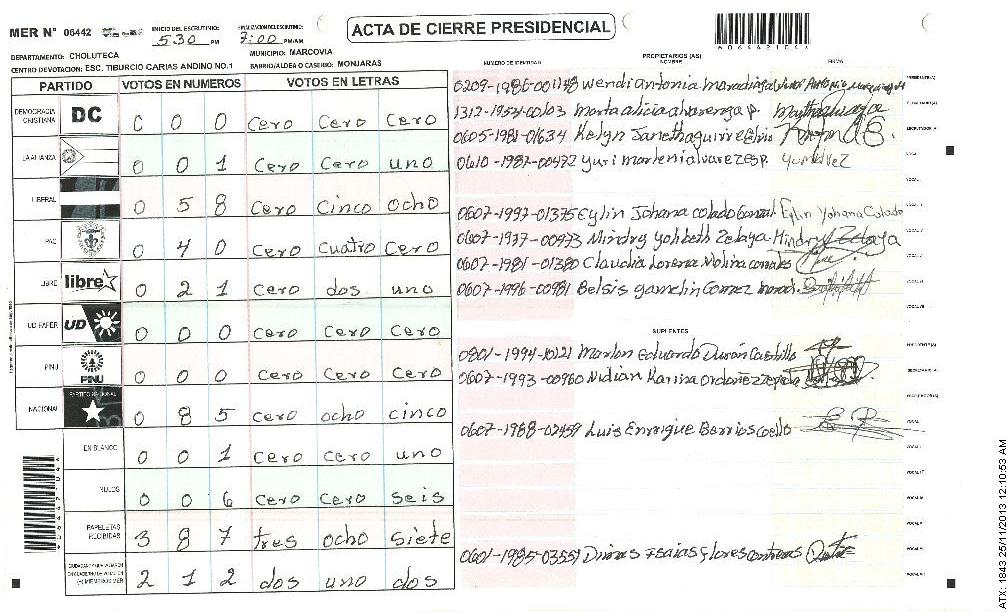 MER N° 06442
INICIO DEL ESCRUTINIO:
5:30 PM
FINALIZACION DEL ESCRUTINIO:
7:00 PM/AM
ACTA DE CIERRE PRESIDENCIAL
DEPARTAMENTO: CHOLUTECA
MUNICIPIO: MARCOVIA
CENTRO DEVOTACION: ESC. TIBURCIO CARIAS ANDINO NO.1
BARRIO/ALDEA O CASERIO: MONJARAS
PARTIDO VOTOS EN NUMEROS VOTOS EN LETRAS
DEMOCRACIA CRISTIANA DC 0 0 0 Cero Cero Cero
LA ALIANZA 0 0 1 Cero Cero uno
LIBERAL 0 5 8 Cero Cinco ocho
PAC 0 4 0 Cero Cuatro Cero
LIBRE libre 0 2 1 Cero dos uno
UD FAPER UD 0 0 0 Cero Cero Cero
PINU PINU 0 0 0 Cero Cero Cero
NACIONAL PARTIDO NACIONAL 0 8 5 Cero ocho cinco
EN BLANCO 0 0 1 Cero Cero uno
NULOS 0 0 6 Cero Cero seis
PAPELETAS RECIBIDAS 3 8 7 tres ocho siete
CIUDADANOS QUE VOTARON EN CUADERNO DE VOTACION (+) MIEMBROS MER 2 1 2 dos uno dos
NUMERO DE IDENTIDAD PROPIETARIOS (AS) NOMBRE FIRMA
0209-1986-001148 Wendi Antonia
1312-1954-00103 Marta alicia alvarenga p.
0605-1981-01634 Kelyn
0610-1987-00472 yuri marleni alvarez esp.
0607-1997-01375 Eylin Johana Colado Eylin Yohana Colado
0607-1977-00973 Mindry Yohbeth Zelaya Mindry Zelaya
0607-1981-01380 Claudia Lorena Molina
0607-1996-00981 Belsis Gomez
SUPLENTES
0801-1994-10121 Marlon Eduardo Durán Castillo
0607-1993-00960 Nidian Karina Ordoñez
0607-1988-02459 Luis Enrique Barrios Coello
0601-1985-03551 Dimas Isaias flores contreras
ATX: 1843 25/11/2013 12:10:53 AM